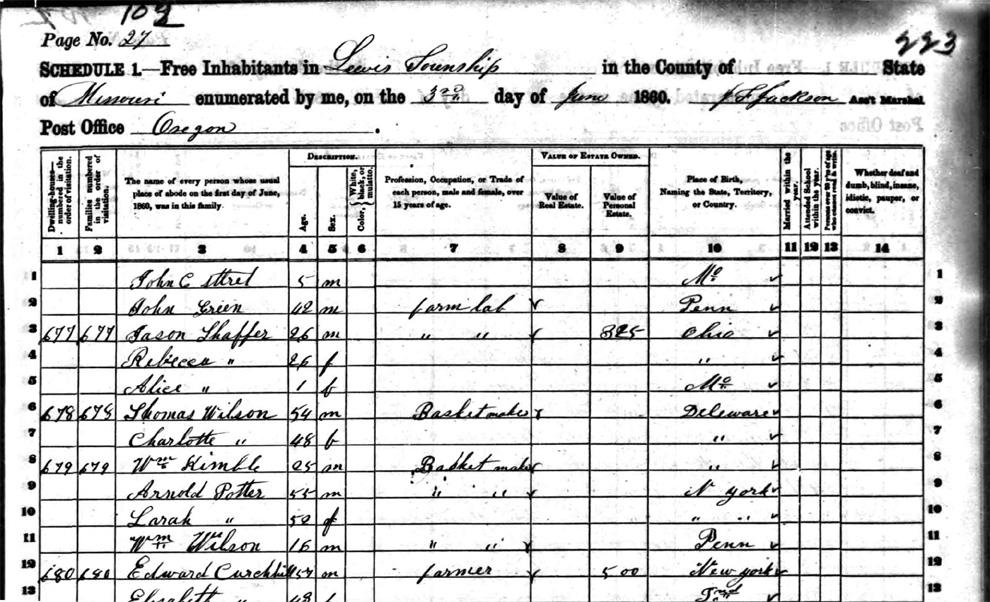 109
Page No. 27
223
SCHEDULE 1.—Free Inhabitants in Lewis Township in the County of State
of Missouri enumerated by me, on the 3rd day of June 1860. Ass't Marshal
Post Office Oregon.
Dwelling-houses—numbered in the order of visitation. Families numbered in the order of visitation. The name of every person whose usual place of abode on the first day of June, 1860, was in this family. DESCRIPTION. Age. Sex. Color, White, black, or mulatto. Profession, Occupation, or Trade of each person, male and female, over 15 years of age. VALUE OF ESTATE OWNED. Value of Real Estate. Value of Personal Estate. Place of Birth, Naming the State, Territory, or Country. Married within the year. Attended School within the year. Whether deaf and dumb, blind, insane, idiotic, pauper, or convict.
1 2 3 4 5 6 7 8 9 10 11 12 13 14
1 John C 5 m Mo 1
2 John Green 42 m farm lab Penn 2
3 677 677 Jason Shaffer 26 m " " 325 Ohio 3
4 Rebecca " 26 f " 4
5 Alice " 1 f Mo 5
6 678 678 Thomas Wilson 54 m Basket maker Deleware 6
7 Charlotte " 48 f " 7
8 679 679 Wm Kimble 25 m Basket maker " 8
9 Arnold Potter 55 m " " N York 9
10 Sarah " 52 f " " 10
11 Wm Wilson 16 m " " Penn 11
12 680 680 Edward 57 m farmer 500 New York 12
13 Elisabeth " 48 f 13